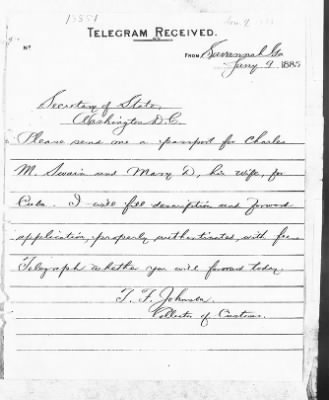 13351
TELEGRAM RECEIVED.
No
FROM Savannah Ga
Jany 9 1885
Secretary of State,
Washington D.C.
Please send me a passport for Charles
M. Swain and Mary D, his wife, for
Cuba. I will fill description and forward
application, properly authenticated, with fee
Telegraph whether you will forward today.
T. F. Johnson
Collector of Customs.